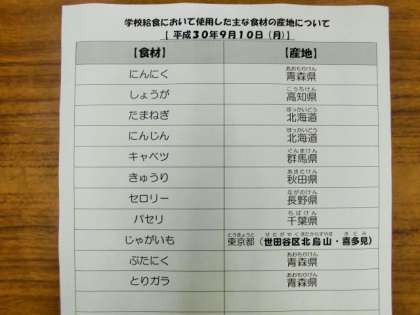 学校給食において使用した主な食材の産地について
【 平成30年9月10日（月）】
【食材】 【産地】
にんにく 青森県
しょうが 高知県
たまねぎ 北海道
にんじん 北海道
キャベツ 群馬県
きゅうり 秋田県
セロリー 長野県
パセリ 千葉県
じゃがいも 東京都（世田谷区北烏山・喜多見）
ぶたにく 青森県
とりガラ 青森県